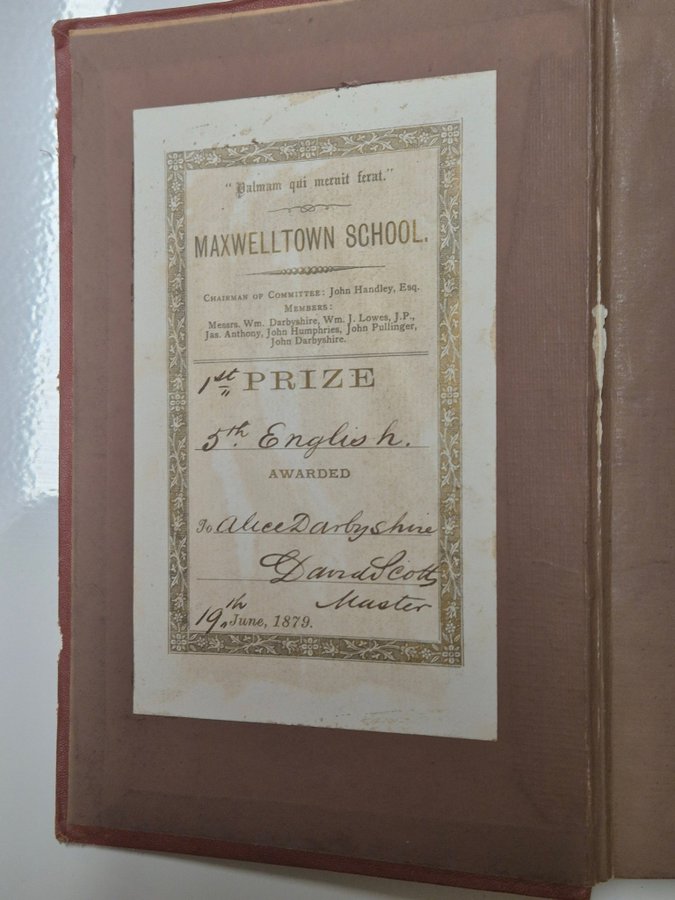 "Palmam qui meruit ferat."
MAXWELLTOWN SCHOOL.
CHAIRMAN OF COMMITTEE: John Handley, Esq.
MEMBERS:
Messrs. Wm. Darbyshire, Wm. J. Lowes, J.P.,
Jas. Anthony, John Humphries, John Pullinger,
John Darbyshire.
1st PRIZE
5th English.
AWARDED
To Alice Darbyshire
David Scott
Master
19th June, 1879.